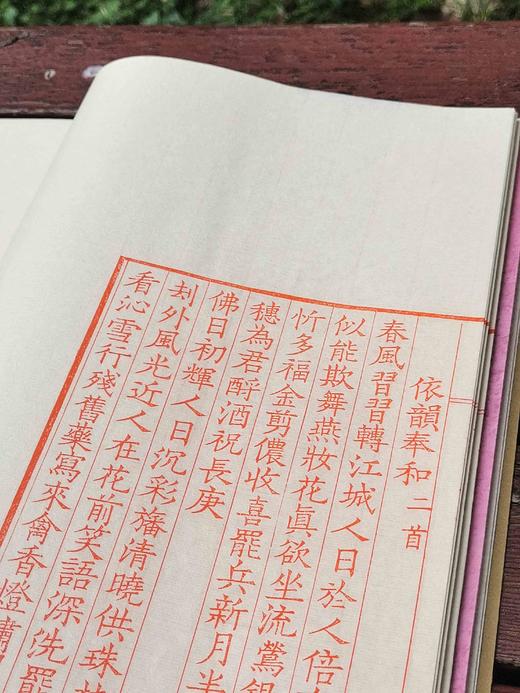 依韻奉和二首
春風習習轉江城人日於人倍
似能欺舞燕妝花眞欲坐流鶯銀
忻多福金剪儂收喜罷兵新月半
穗為君酹酒祝長庚
佛日初輝人日沉彩旛清曉供珠
刦外風光近人在花前笑語深洗罷
看沁雪行殘舊藥寫來禽香燈